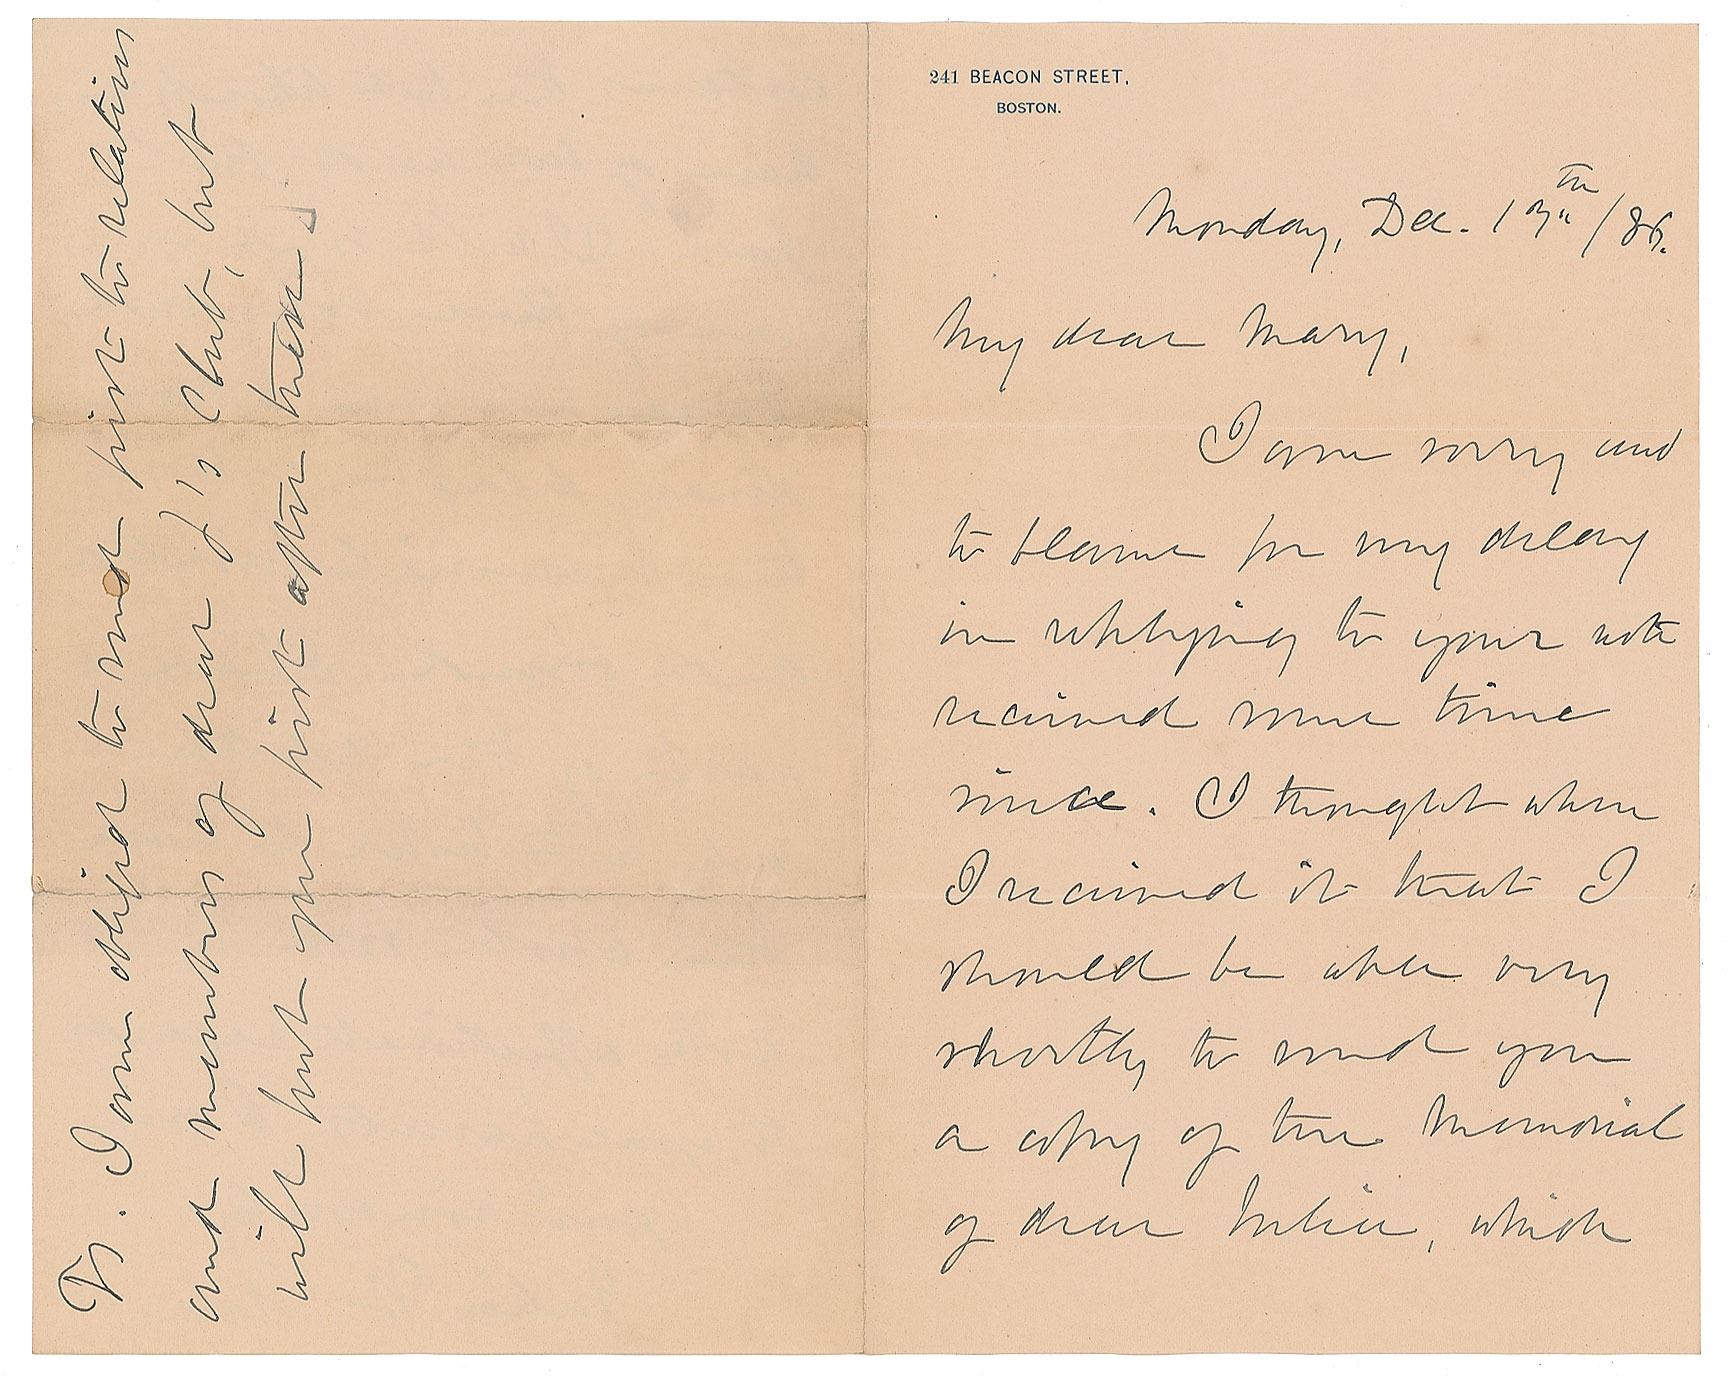 241 BEACON STREET,
BOSTON.
Monday, Dec. 13th /86.
My dear Mary,
I am sorry and
to blame for my delay
in replying to your note
received some time
since. I thought when
I received it that I
should be able very
shortly to send you
a copy of the Memorial
of dear Julia, which
Ps. I am obliged to send first to relations
and members of dear J's Club, but
will put you first after these